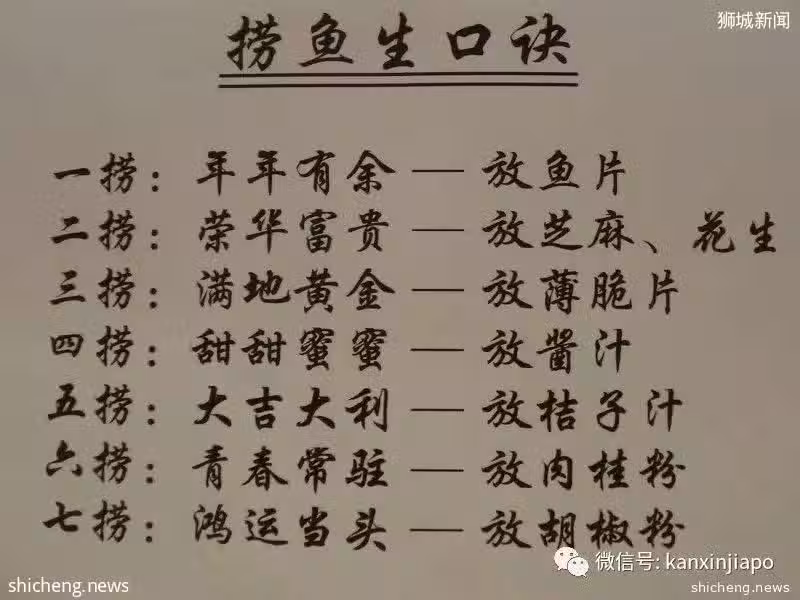 狮城新闻
捞鱼生口诀
一捞：年年有余 — 放鱼片
二捞：荣华富贵 — 放芝麻、花生
三捞：满地黄金 — 放薄脆片
四捞：甜甜蜜蜜 — 放酱汁
五捞：大吉大利 — 放桔子汁
六捞：青春常驻 — 放肉桂粉
七捞：鸿运当头 — 放胡椒粉
微信号: kanxinjiapo
shicheng.news
shicheng.news